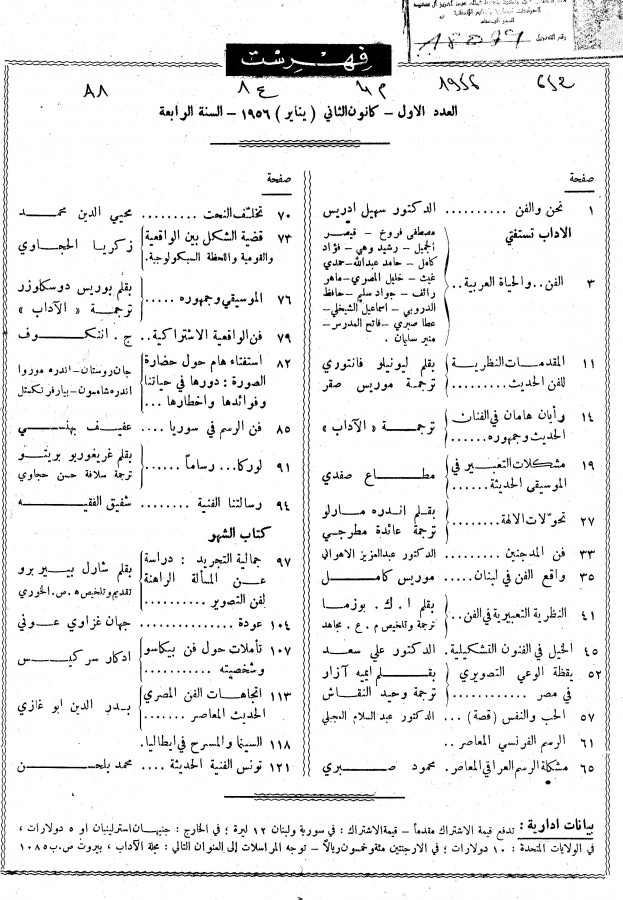 رقم التسجيل ١٨٥٧٩
فهرست
٦٥٢ ١٩٥٦ م٤ ع١ ٨٨
العدد الاول - كانون الثاني ( يناير ) ١٩٥٦ - السنة الرابعة
صفحة
١ نحن والفن .......... الدكتور سهيل ادريس
الاداب تستفتي
٣ الفن .. والحياة العربية ..
مصطفى فروخ - قيصر
الجميل - رشيد وهي - فؤاد
كامل - حامد عبدالله - حمدي
غيث - خليل المصري - ماهر
رائف - جواد سليم - حافظ
الدروبي - اسماعيل الشيخلي -
عطا صبري - فاتح المدرس -
منير سايان .
١١ المقدمات النظرية بقلم ليونيلو فانتوري
للفن الحديث .......... ترجمة موريس صقر
١٤ رأيان هامان في الفنان
الحديث وجمهوره ...... ترجمة « الآداب »
١٩ مشكلات التعبير في
الموسيقى الحديثة ....... مطاع صفدي
٢٧ تحولات الالهة ..........
بقلم اندره مارلو
ترجمة عائدة مطرجي
٣٣ فن المدجنين .......... الدكتور عبدالعزيز الاهواني
٣٥ واقع الفن في لبنان ..... موريس كامل
٤١ النظرية التعبيرية في الفن ..
بقلم ا . ك . بوزما
ترجمة وتلخيص م . ع . مجاهد
٤٥ الحيل في الفنون التشكيلية . الدكتور علي سعد
٥٢ يقظة الوعي التصويري بقلم ايميه آزار
في مصر ............ ترجمة وحيد النقاش
٥٧ الحب والنفس ( قصة ) ... الدكتور عبد السلام العجيلي
٦١ الرسم الفرنسي المعاصر ..
٦٥ مشكلة الرسم العراقي المعاصر . محمود صبري
صفحة
٧٠ تخلّف النحت ......... محيي الدين محمد
٧٣ قضية الشكل بين الواقعية
والقومية واللحظة السيكولوجية . زكريا الحجاوي
٧٦ الموسيقي وجمهوره .....
بقلم بوريس دوسكاوزر
ترجمة « الآداب »
٧٩ فن الواقعية الاشتراكية .. ج . اننكوف
٨٢ استفتاء هام حول حضارة
الصورة : دورها في حياتنا
وفوائدها واخطارها ...
جان روستان - اندره موروا
اندره شامسون - بيارفرنكستل
٨٥ فن الرسم في سوريا .... عفيف بهنسي
٩١ لوركا ... رساماً ......
بقلم غريغوريو بريتو
ترجمة سلافة حسن حجاوي
٩٤ رسالتنا الفنية ......... شفيق الفقيه
كتاب الشهر
٩٧ جمالية التجريد : دراسة
عن المسألة الراهنة
لفن التصوير ..........
بقلم شارل بيير برو
تقديم وتلخيص ه . ص . الخوري
١٠٤ عودة ............... جهان غزاوي عوني
١٠٧ تأملات حول فن بيكاسو
وشخصيته ........... ادكار سركيس
١١٣ اتجاهات الفن المصري
الحديث المعاصر ....... بدر الدين ابو غازي
١١٨ السينما والمسرح في ايطاليا .
١٢١ تونس الفنية الحديثة .... محمد بلحسن
بيانات ادارية : تدفع قيمة الاشتراك مقدماً - قيمة الاشتراك : في سورية ولبنان ١٢ ليرة ؛ في الخارج : جنيهان استرلينيان او ٥ دولارات ،
في الولايات المتحدة : ١٠ دولارات ؛ في الارجنتين مئة وخمسون ريالاً - توجه المراسلات إلى العنوان التالي : مجلة الآداب ، بيروت ص . ب ١٠٨٥